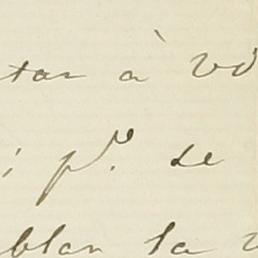 tar à vo
; pº. se
blan la v